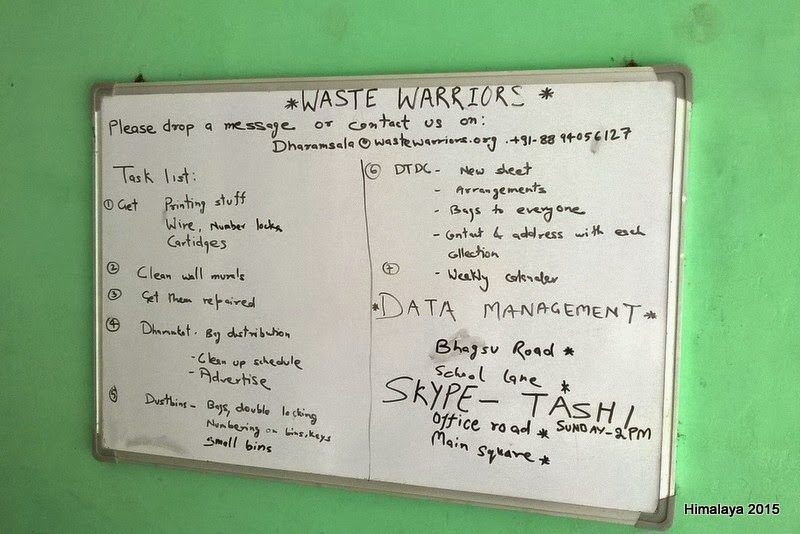 *WASTE WARRIORS *
Please drop a message or contact us on:
Dharamsala@wastewarriors.org . +91-88 94056127
Task list:
① Get Printing stuff
Wire, Number locks
Cartidges
② Clean wall murals
③ Get them repaired
④ Dharamkot. Bag distribution
- Clean up schedule
- Advertise
⑤ Dustbins - Bags, double locking
Numbering on bins, keys
Small bins
⑥ DTDC - New sheet
- Arrangements
- Bags to everyone
- Contact & address with each
collection
⑦ - Weekly calender
*DATA MANAGEMENT*
Bhagsu Road *
School lane *
SKYPE - TASHI
Office road * SUNDAY-2PM
Main Square *
Himalaya 2015